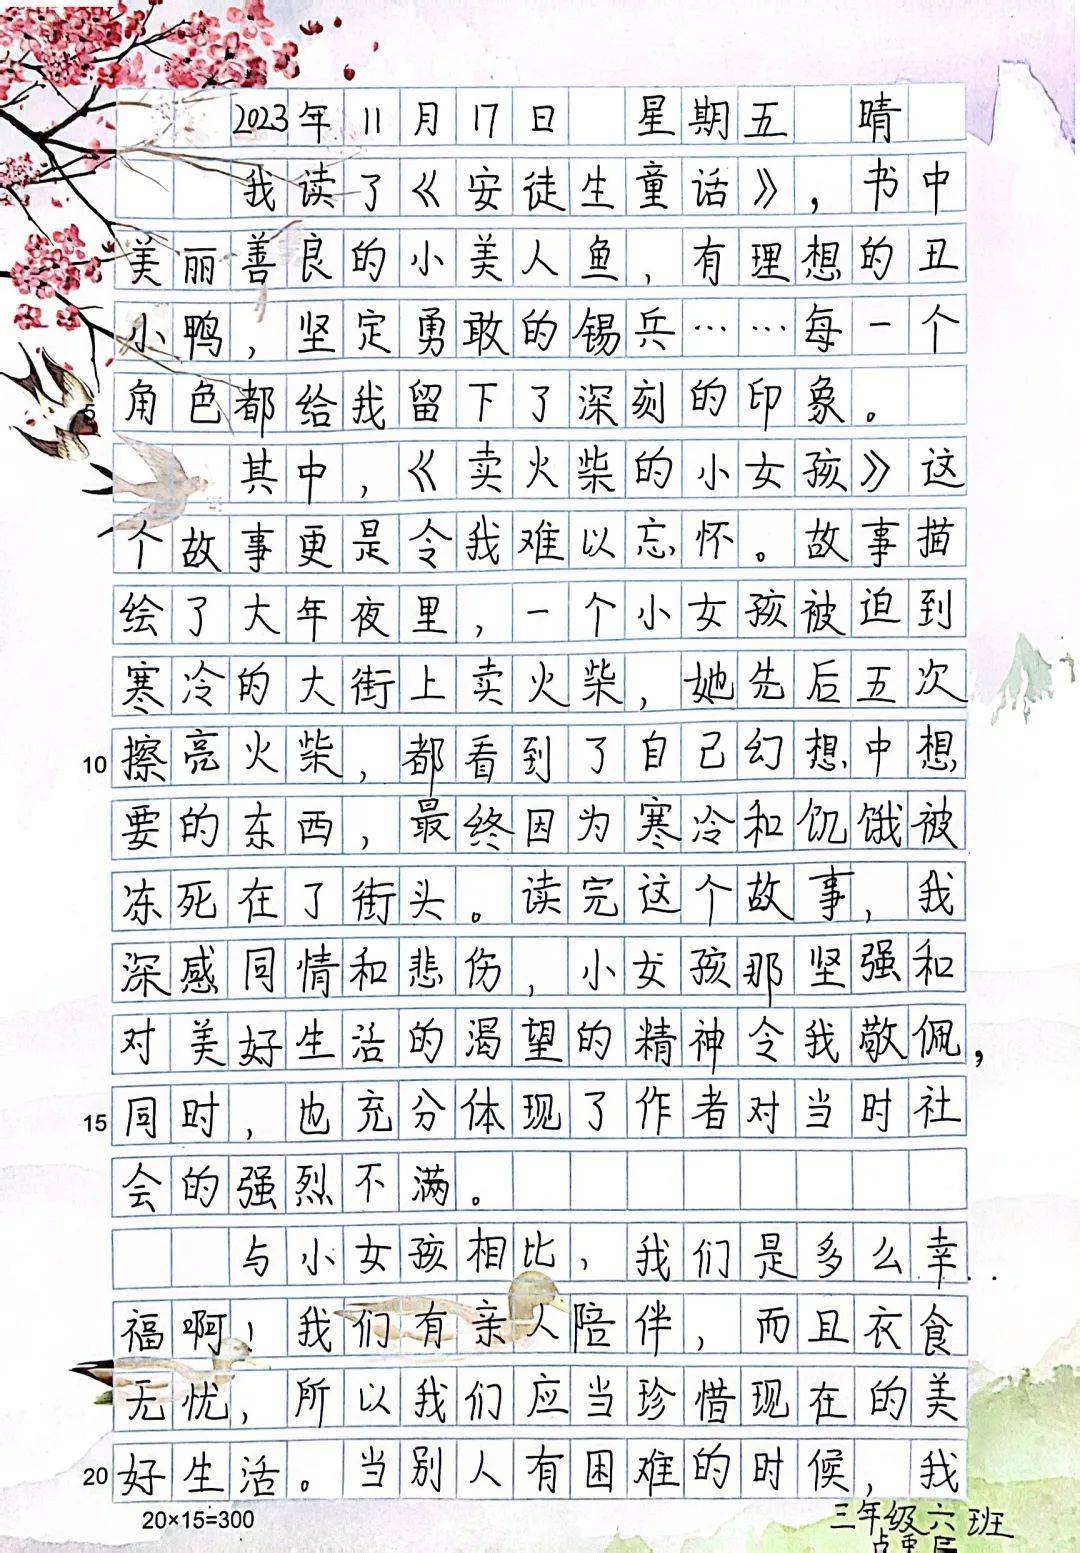 2023年11月17日 星期五 晴
我读了《安徒生童话》，书中
美丽善良的小美人鱼，有理想的丑
小鸭，坚定勇敢的锡兵……每一个
5 角色都给我留下了深刻的印象。
其中，《卖火柴的小女孩》这
个故事更是令我难以忘怀。故事描
绘了大年夜里，一个小女孩被迫到
寒冷的大街上卖火柴，她先后五次
10 擦亮火柴，都看到了自己幻想中想
要的东西，最终因为寒冷和饥饿被
冻死在了街头。读完这个故事，我
深感同情和悲伤，小女孩那坚强和
对美好生活的渴望的精神令我敬佩，
15 同时，也充分体现了作者对当时社
会的强烈不满。
与小女孩相比，我们是多么幸
福啊！我们有亲人陪伴，而且衣食
无忧，所以我们应当珍惜现在的美
20 好生活。当别人有困难的时候，我
20×15=300
三年级六班